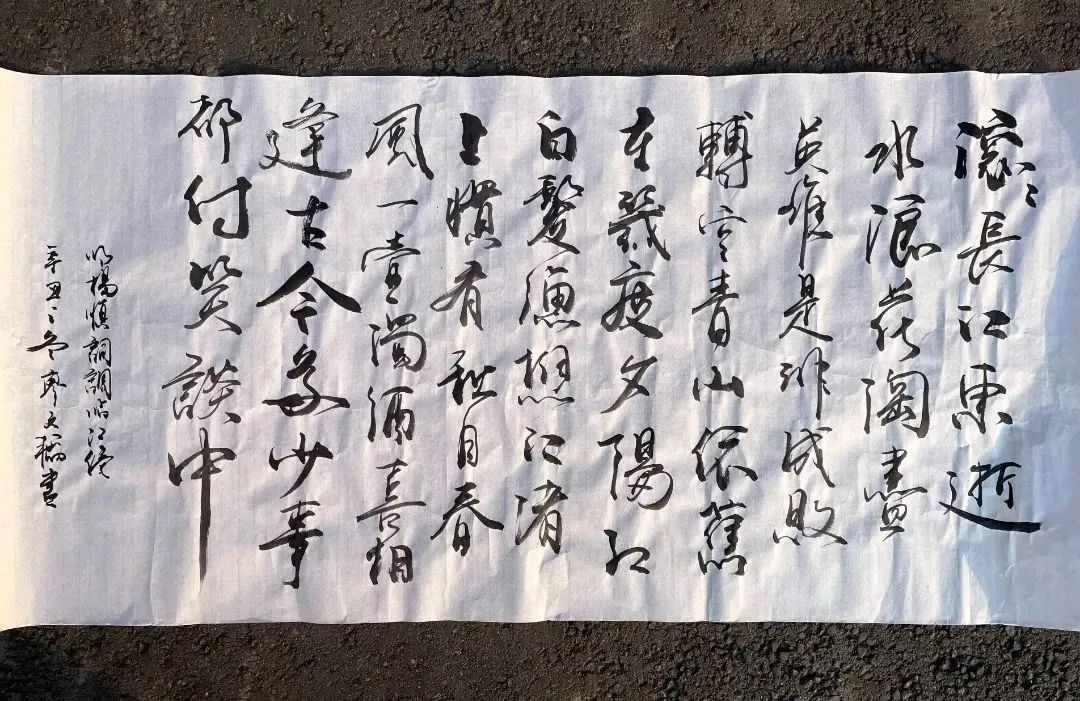 滾〻長江東逝
水浪花淘盡
英雄是非成敗
轉空青山依舊
在幾度夕陽紅
白髮漁樵江渚
上慣看秋月春
風一壺濁酒喜相
逢古今多少事
都付笑談中
明楊慎詞調臨江僊
辛丑之冬廖文書